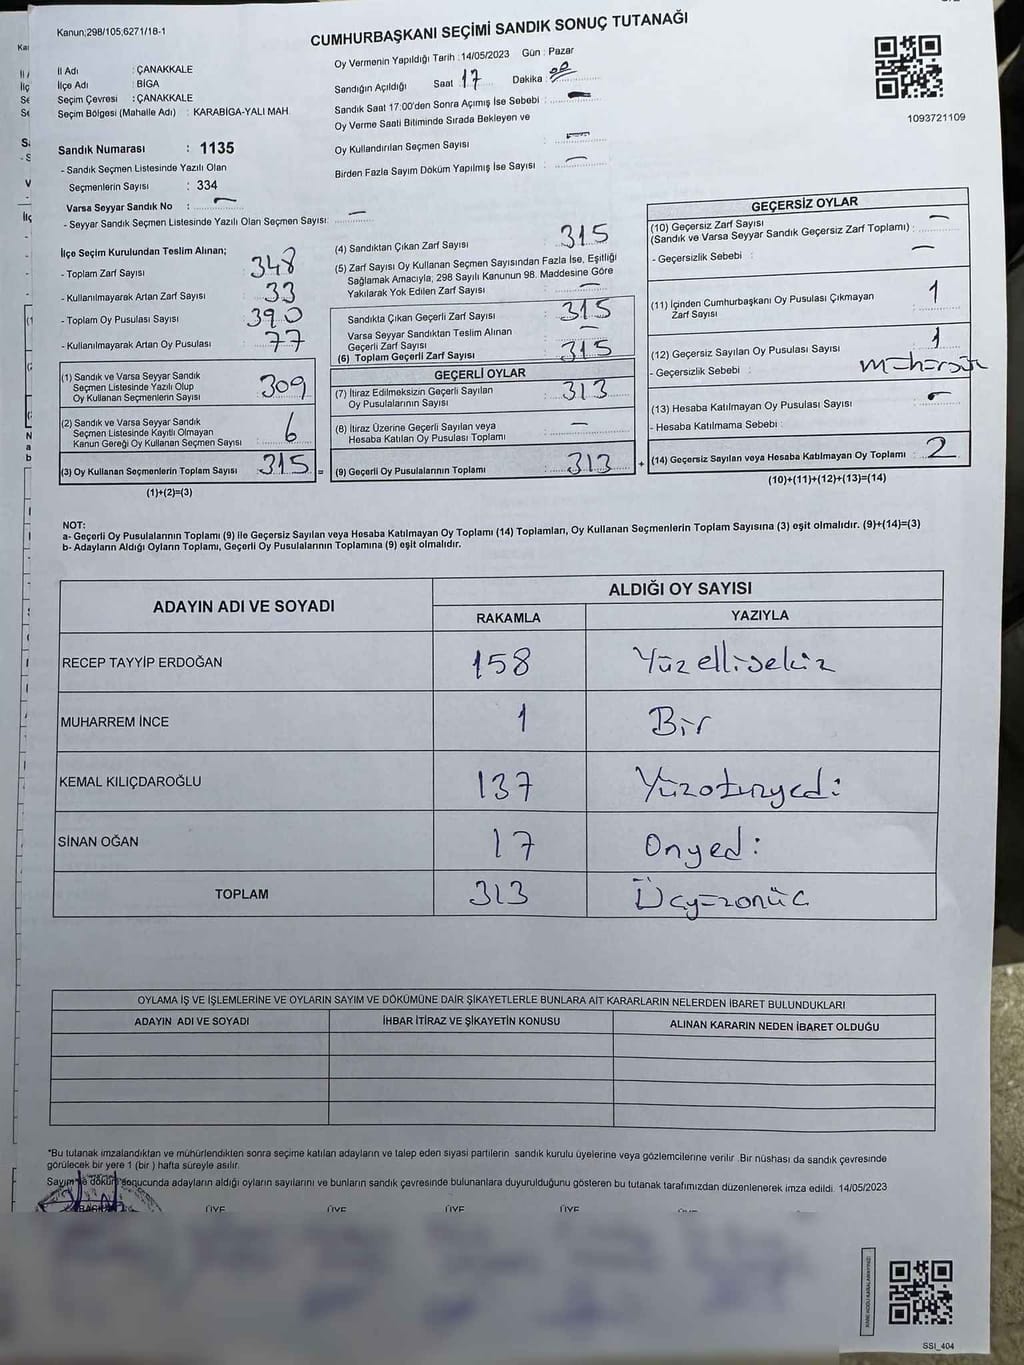 Kanun;298/105;6271/18-1
CUMHURBAŞKANI SEÇİMİ SANDIK SONUÇ TUTANAĞI
İl Adı : ÇANAKKALE
İlçe Adı : BİGA
Seçim Çevresi : ÇANAKKALE
Seçim Bölgesi (Mahalle Adı) : KARABİGA-YALI MAH.
Oy Vermenin Yapıldığı Tarih : 14/05/2023 Gün : Pazar
Sandığın Açıldığı Saat 17 Dakika 00
Sandık Saat 17:00'den Sonra Açımış İse Sebebi : —
Oy Verme Saati Bitiminde Sırada Bekleyen ve
Oy Kullandırılan Seçmen Sayısı : —
Birden Fazla Sayım Döküm Yapılmış İse Sayısı : —
1093721109
Sandık Numarası : 1135
- Sandık Seçmen Listesinde Yazılı Olan
Seçmenlerin Sayısı : 334
Varsa Seyyar Sandık No : —
- Seyyar Sandık Seçmen Listesinde Yazılı Olan Seçmen Sayısı: —
İlçe Seçim Kurulundan Teslim Alınan;
- Toplam Zarf Sayısı : 348
- Kullanılmayarak Artan Zarf Sayısı : 33
- Toplam Oy Pusulası Sayısı : 390
- Kullanılmayarak Artan Oy Pusulası : 77
(1) Sandık ve Varsa Seyyar Sandık
Seçmen Listesinde Yazılı Olup
Oy Kullanan Seçmenlerin Sayısı : 309
(2) Sandık ve Varsa Seyyar Sandık
Seçmen Listesinde Kayıtlı Olmayan
Kanun Gereği Oy Kullanan Seçmen Sayısı : 6
(3) Oy Kullanan Seçmenlerin Toplam Sayısı : 315 =
(1)+(2)=(3)
(4) Sandıktan Çıkan Zarf Sayısı : 315
(5) Zarf Sayısı Oy Kullanan Seçmen Sayısından Fazla İse, Eşitliği
Sağlamak Amacıyla; 298 Sayılı Kanunun 98. Maddesine Göre
Yakılarak Yok Edilen Zarf Sayısı : —
Sandıkta Çıkan Geçerli Zarf Sayısı : 315
Varsa Seyyar Sandıktan Teslim Alınan
Geçerli Zarf Sayısı : —
(6) Toplam Geçerli Zarf Sayısı : 315
GEÇERLİ OYLAR
(7) İtiraz Edilmeksizin Geçerli Sayılan
Oy Pusulalarının Sayısı : 313
(8) İtiraz Üzerine Geçerli Sayılan veya
Hesaba Katılan Oy Pusulası Toplamı : —
(9) Geçerli Oy Pusulalarının Toplamı : 313 +
GEÇERSİZ OYLAR
(10) Geçersiz Zarf Sayısı
(Sandık ve Varsa Seyyar Sandık Geçersiz Zarf Toplamı) : —
- Geçersizlik Sebebi : —
(11) İçinden Cumhurbaşkanı Oy Pusulası Çıkmayan
Zarf Sayısı : 1
(12) Geçersiz Sayılan Oy Pusulası Sayısı : 1
- Geçersizlik Sebebi : mühürsüz
(13) Hesaba Katılmayan Oy Pusulası Sayısı : —
- Hesaba Katılmama Sebebi :
(14) Geçersiz Sayılan veya Hesaba Katılmayan Oy Toplamı : 2
(10)+(11)+(12)+(13)=(14)
NOT:
a- Geçerli Oy Pusulalarının Toplamı (9) ile Geçersiz Sayılan veya Hesaba Katılmayan Oy Toplamı (14) Toplamları, Oy Kullanan Seçmenlerin Toplam Sayısına (3) eşit olmalıdır. (9)+(14)=(3)
b- Adayların Aldığı Oyların Toplamı, Geçerli Oy Pusulalarının Toplamına (9) eşit olmalıdır.
ADAYIN ADI VE SOYADI ALDIĞI OY SAYISI
RAKAMLA YAZIYLA
RECEP TAYYİP ERDOĞAN 158 Yüzellisekiz
MUHARREM İNCE 1 Bir
KEMAL KILIÇDAROĞLU 137 Yüzotuzyedi
SİNAN OĞAN 17 Onyedi
TOPLAM 313 Üçyüzonüç
OYLAMA İŞ VE İŞLEMLERİNE VE OYLARIN SAYIM VE DÖKÜMÜNE DAİR ŞİKAYETLERLE BUNLARA AİT KARARLARIN NELERDEN İBARET BULUNDUKLARI
ADAYIN ADI VE SOYADI İHBAR İTİRAZ VE ŞİKAYETİN KONUSU ALINAN KARARIN NEDEN İBARET OLDUĞU
*Bu tutanak imzalandıktan ve mühürlendikten sonra seçime katılan adayların ve talep eden siyasi partilerin sandık kurulu üyelerine veya gözlemcilerine verilir .Bir nüshası da sandık çevresinde
görülecek bir yere 1 (bir ) hafta süreyle asılır.
Sayım ve döküm sonucunda adayların aldığı oyların sayılarını ve bunların sandık çevresinde bulunanlara duyurulduğunu gösteren bu tutanak tarafımızdan düzenlenerek imza edildi. 14/05/2023
BAŞKAN ÜYE ÜYE ÜYE ÜYE
SSI_404